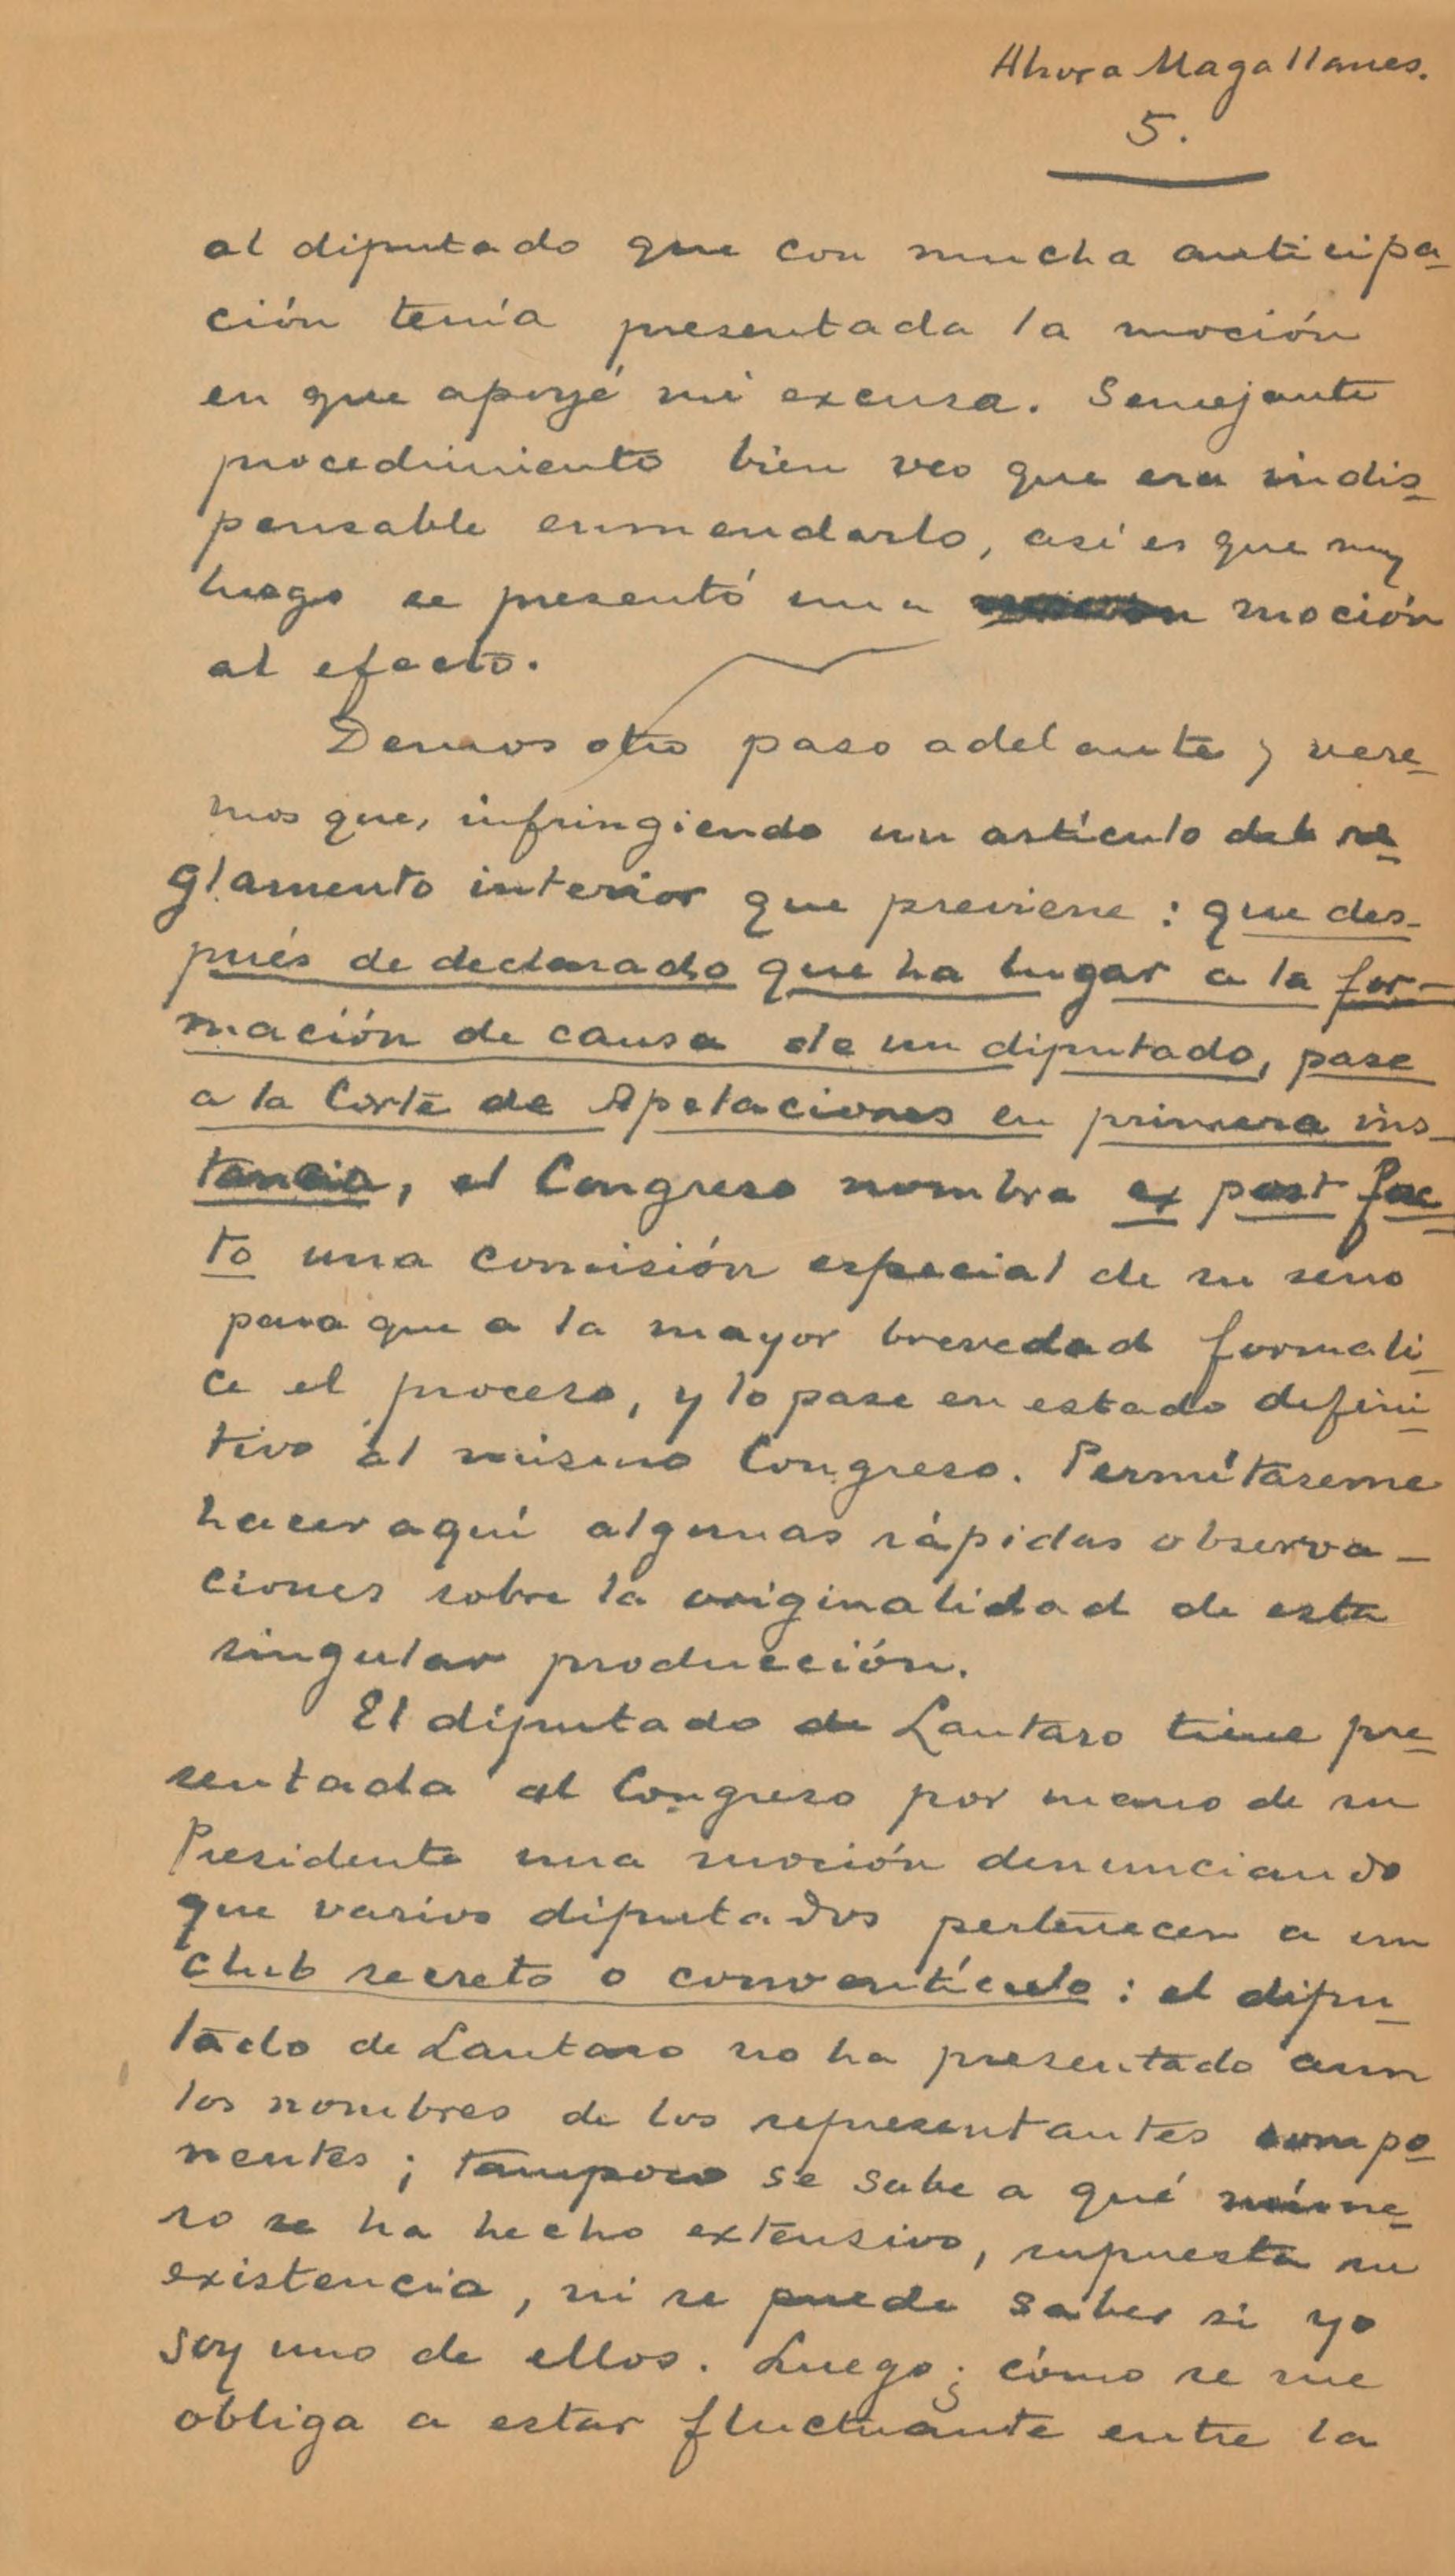 Ahora Magallanes.
5.
al diputado que con mucha anticipa-
ción tenía presentada la moción
en que apoyé mi excusa. Semejante
procedimiento bien veo que era indis-
pensable enmendarlo, así es que muy
luego se presentó una moción
al efecto.
Demos otro paso adelante y vere-
mos que, infringiendo un artículo del re-
glamento interior que previene: que des-
pués de declarado que ha lugar a la for-
mación de causa de un diputado, pase
a la Corte de Apelaciones en primera ins-
tancia, el Congreso nombra ex post fac-
to una comisión especial de su seno
para que a la mayor brevedad formali-
ce el proceso, y lo pase en estado defini-
tivo al mismo Congreso. Permítaseme
hacer aquí algunas rápidas observa-
ciones sobre la originalidad de esta
singular producción.
El diputado de Lautaro tiene pre-
sentada al Congreso por mano de su
Presidente una moción denunciando
que varios diputados pertenecen a un
club secreto o conventículo: el dipu-
tado de Lautaro no ha presentado aun
los nombres de los representantes compo-
nentes; tampoco se sabe a qué núme-
ro se ha hecho extensivo, supuesta su
existencia, ni se puede saber si yo
soy uno de ellos. Luego ¿cómo se me
obliga a estar fluctuante entre la